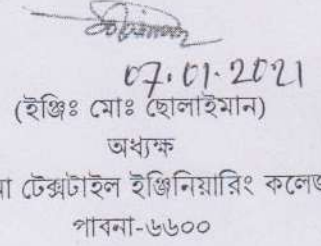 07.01.2021
(ইঞ্জিঃ মোঃ ছোলাইমান)
অধ্যক্ষ
টেক্সটাইল ইঞ্জিনিয়ারিং কলেজ
পাবনা-৬৬০০